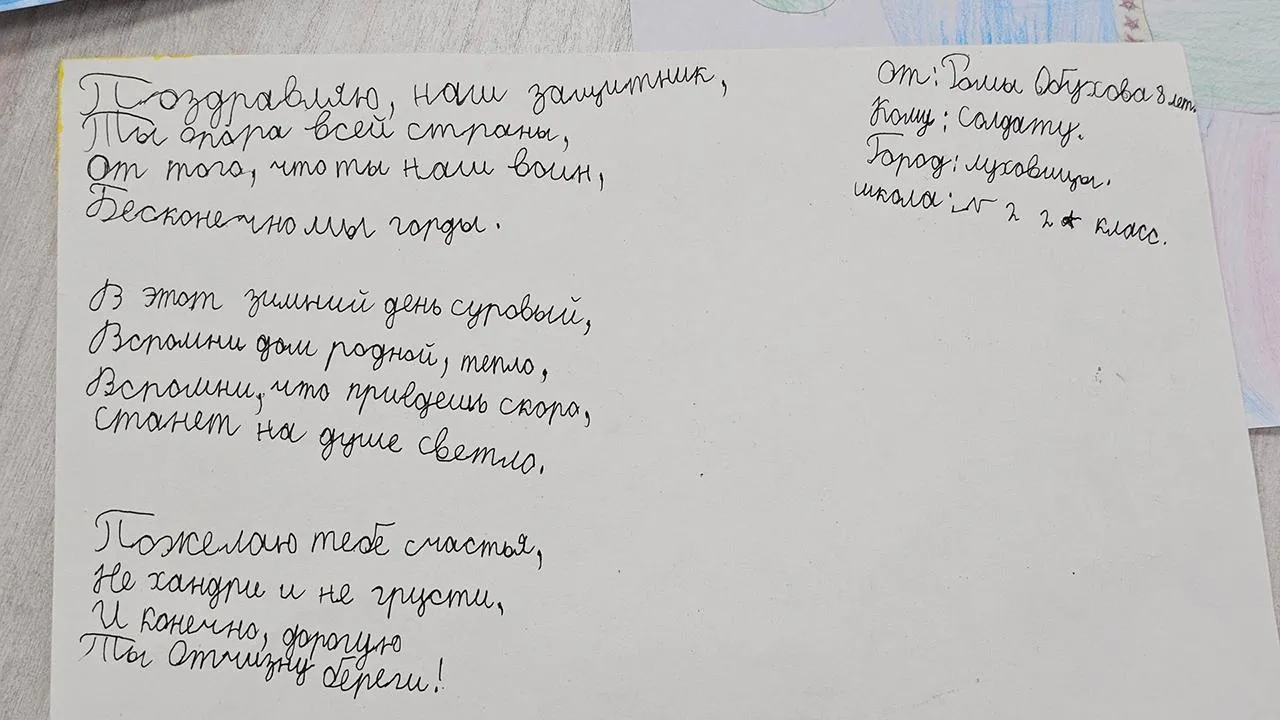 Поздравляю, наш защитник,
Ты опора всей страны,
От того, что ты наш воин,
Бесконечно мы горды.
В этот зимний день суровый,
Вспомни дом родной, тепло,
Вспомни, что приедешь скоро,
станет на душе светло.
Пожелаю тебе счастья,
Не хандри и не грусти,
И конечно, дорогую
Ты Отчизну береги!
От: Ромы Обухова 8 лет.
Кому: Солдату.
Город: Луховицы.
школа: № 2 2 класс.